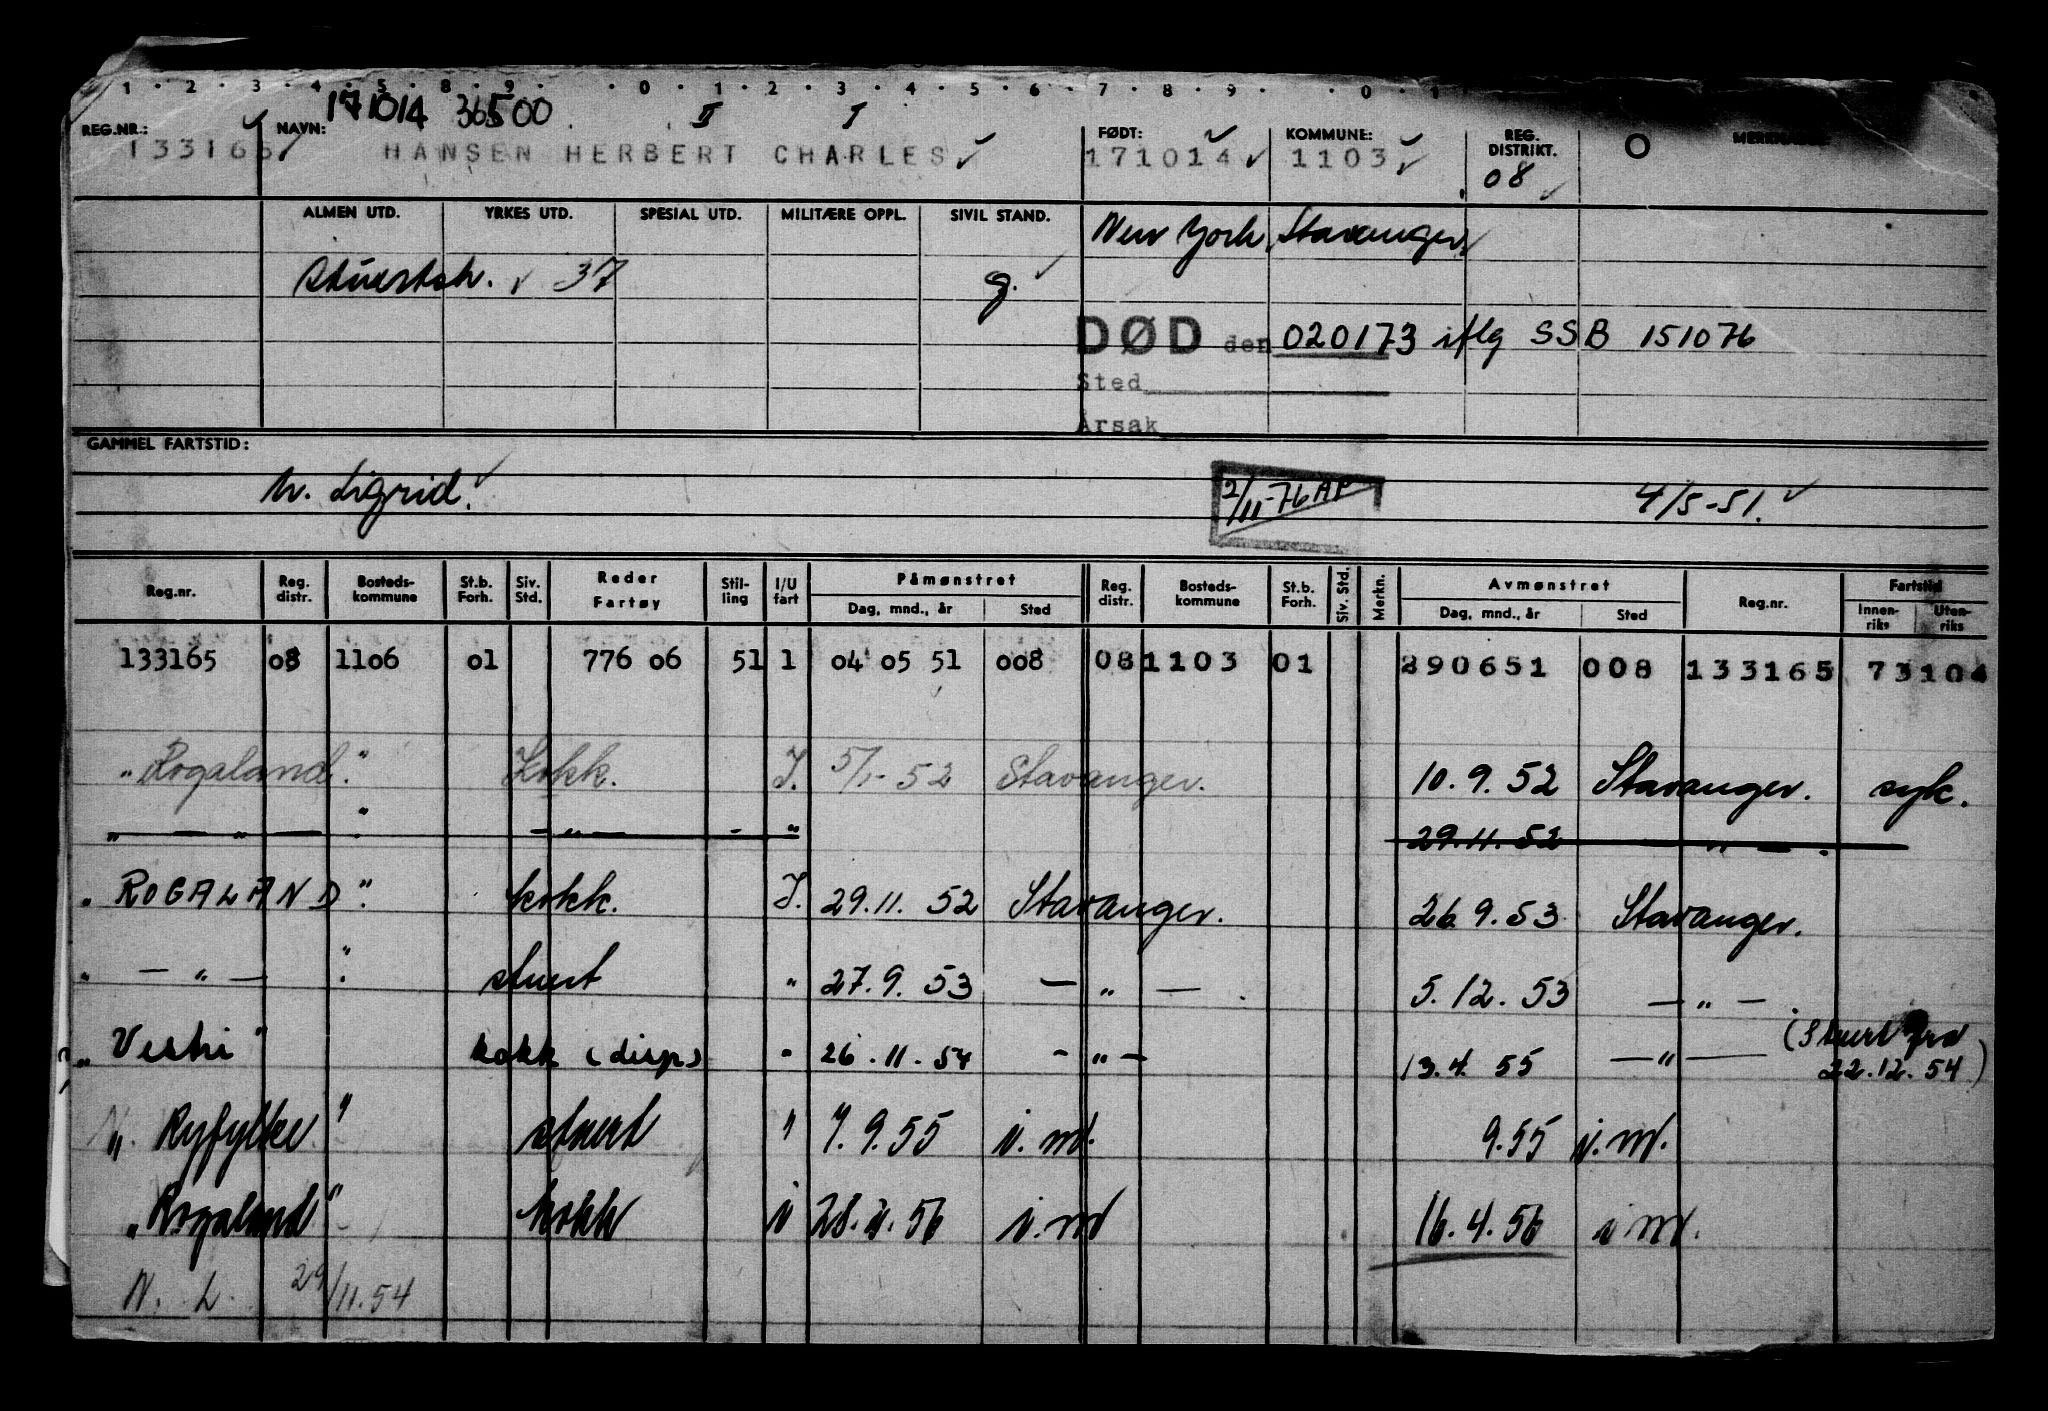 1 · 2 · 3 · 4 · 5 · 8 · 9 · 0 · 1 · 2 · 3 · 4 · 5 · 6 · 7 · 8 · 9 · 0 · 1
171014 36500 II I
REG.NR.: NAVN: FØDT: KOMMUNE: REG. DISTRIKT. O
133165 HANSEN HERBERT CHARLES 171014 1103 08
ALMEN UTD. YRKES UTD. SPESIAL UTD. MILITÆRE OPPL. SIVIL STAND. New York Stavanger
stuertsk. 37 g.
DØD den 020173 iflg SSB 151076
Sted
Årsak
GAMMEL FARTSTID:
h. Sigrid. 2/11-76 AP 4/5-51.
Reg.nr. Reg. distr. Bosteds-kommune St.b. Forh. Siv. Std. Reder Fartøy Stil-ling I/U fart Påmønstret Dag, mnd., år Sted Reg. distr. Bosteds-kommune St.b. Forh. Siv. Std. Merkn. Avmønstret Dag, mnd., år Sted Reg.nr. Fartstid Innen-riks Uten-riks
133165 08 1106 01 776 06 51 1 04 05 51 008 08 1103 01 290651 008 133165 73104
"Rogaland" Kokk. I. 5/1-52 Stavanger. 10.9.52 Stavanger. syk.
" — " — " - " — - " 29.11.52 — " — .
"ROGALAND" kokk. I. 29.11.52 Stavanger. 26.9.53 Stavanger.
" — " — " stuert " 27.9.53 — " — . 5.12.53 — " — .
"Vestri" kokk (disp) " 26.11.54 - " - 13.4.55 — " — (Stuert fra
22.12.54)
"Ryfylke" stuert " 7.9.55 i.m. 9.55 i.m.
"Rogaland" kokk i 28.2.56 i.m 16.4.56 i m.
N. L. 29/11.54